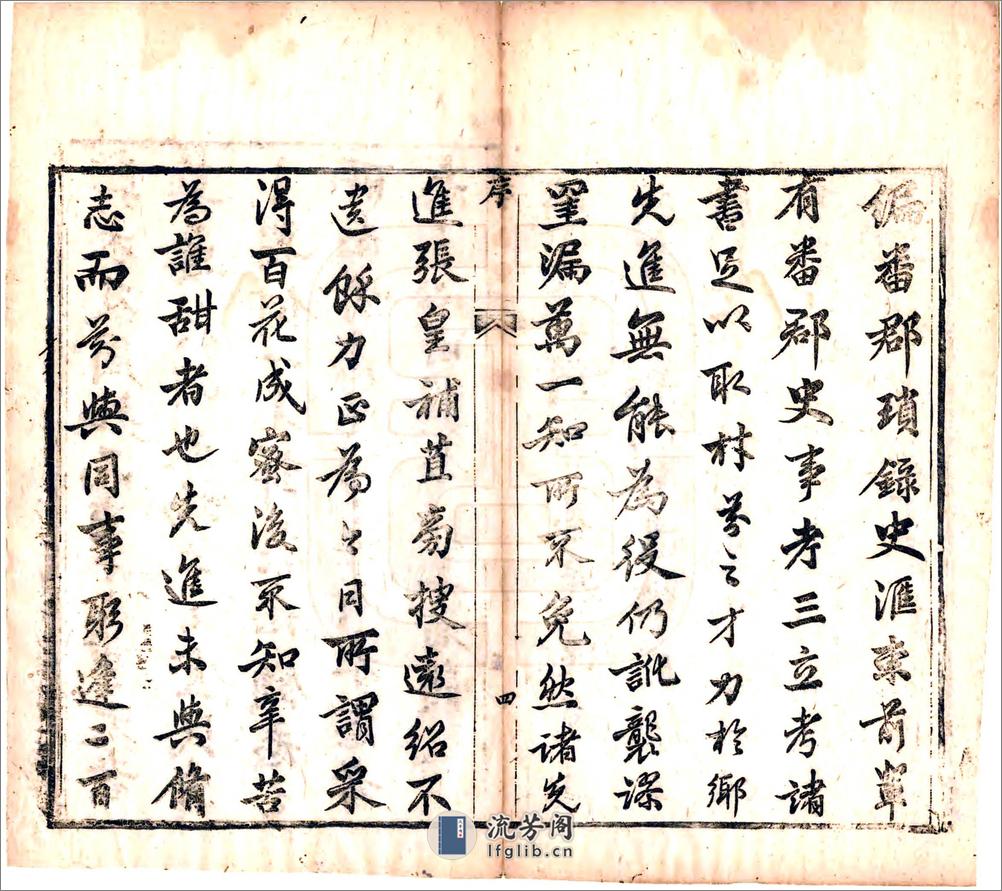 編番郡瑣錄史滙來前輩
有番郡史事考三立考諸
書足以取材芬之才力於鄉
先進無能為役仍訛襲謬
罣漏萬一知所不免然諸先
序
四
進張皇補苴旁搜遠紹不
遺餘力正為今日所謂采
得百花成蜜後不知辛苦
為誰甜者也先進未與脩
志而芬與同事躬逢二百
流芳阁
lfglib.cn